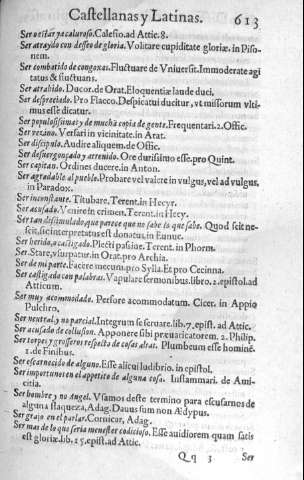 Castellanas y Latinas. 613
Ser o estar pa caluroso. Calesio. ad Attic. 8.
Ser atraydo con desseo de gloria. Volitare cupiditate gloriæ. in Piso-
nem.
Ser combatido de congoxas. Fluctuare de Vniuersit. Immoderate agi
tatus & fluctuans.
Ser atrahido. Ducor. de Orat. Eloquentiæ laude duci.
Ser despreciado. Pro Flacco. Despicatui ducitur, vt missorum vlti-
mus esse dicatur.
Ser populosissima y de mucha copia de gente. Frequentari. 2. Offic.
Ser vezino. Versari in vicinitate. in Atat.
Ser discipulo. Audire aliquem. de Offic.
Ser desuergonçado y atreuido. Ore durissimo esse. pro Quint.
Ser capitan. Ordines ducere. in Anton.
Ser agradable al pueblo. Probare vel valere in vulgus, vel ad vulgus,
in Paradox.
Ser inconstante. Titubare, Terent. in Hecyr.
Ser acusado. Venire in crimen, Terent. in Hecy.
Ser tan dissimulado, que parece que no sabe lo que sabe. Quod scit ne-
scit, sic interpretatus est donatus. in Eunuc.
Ser herido, o castigado. Plecti passiue. Terent. in Phorm.
Ser. Stare, vsurpatur. in Orat. pro Archia.
Ser de mi parte. Facere mecum. pro Sylla. Et pro Cecinna.
Ser castigado con palabras. Vapulare sermonibus. libro. 2. epistol. ad
Atticum.
Ser muy acommodado. Persore accommodatum. Cicer. in Appio
Pulchro.
Ser neutral, y no parcial. Integrum se seruare. lib. 7. epist. ad Attic.
Ser acusado de collusion. Apponere sibi præuaricatorem. 2. Philip.
Ser torpes y grosseros respecto de cosas altas. Plumbeum esse hominé.
1. de Finibus.
Ser escarnecido de alguno. Esse alicui ludibrio. in epistol.
Ser importuno en el appetito de alguna cosa. Inflammari. de Ami-
citia.
Ser hombre y no angel. Vsamos deste termino para escusarnos de
alguna flaqueza, Adag. Dauus sum non Ædypus.
Ser grajo en el parlar. Cornicar, Adag.
Ser mas de lo que seria menester codicioso. Esse auidiorem quam satis
est gloriæ. lib. 15. epist. ad Attic.
Qq 3 Ser